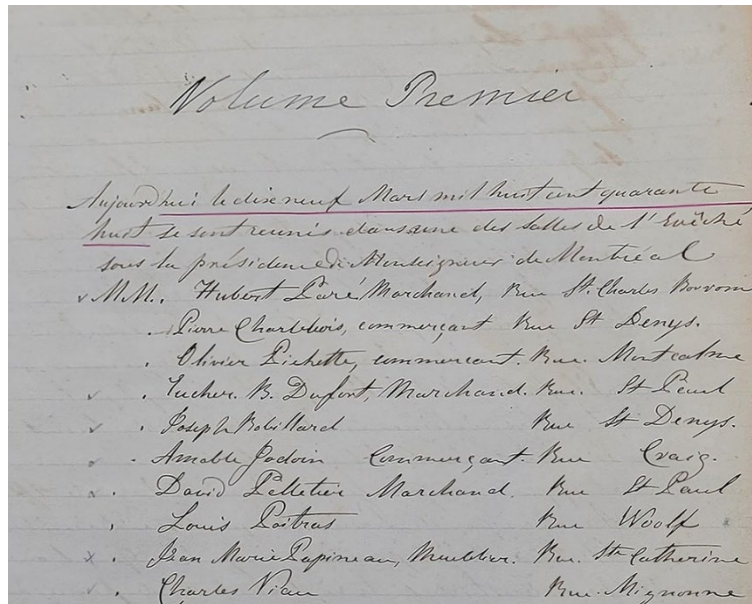 Volume Premier
Aujourd'hui le dixneuf Mars mil huit cent quarante
huit se sont reunis dans une des salles de l'Evêché
sous la présidence de Monseigneur de Montréal
MM. Hubert Paré Marchand, Rue St. Charles Borrom
Pierre Charlebois, commerçant Rue St Denys.
Olivier Pichette, commercant. Rue. Montcalme
B. Dufort, Marchand. Rue. St Paul
Joseph Robillard Rue St Denys.
Amable Jodoin Commerçant. Rue Craig.
David Pelletier Marchand. Rue St Paul
Louis Poitras Rue Woolf
Jean Marie Papineau, Meublier. Rue. Ste Catherine
Charles Viau Rue. Mignonne